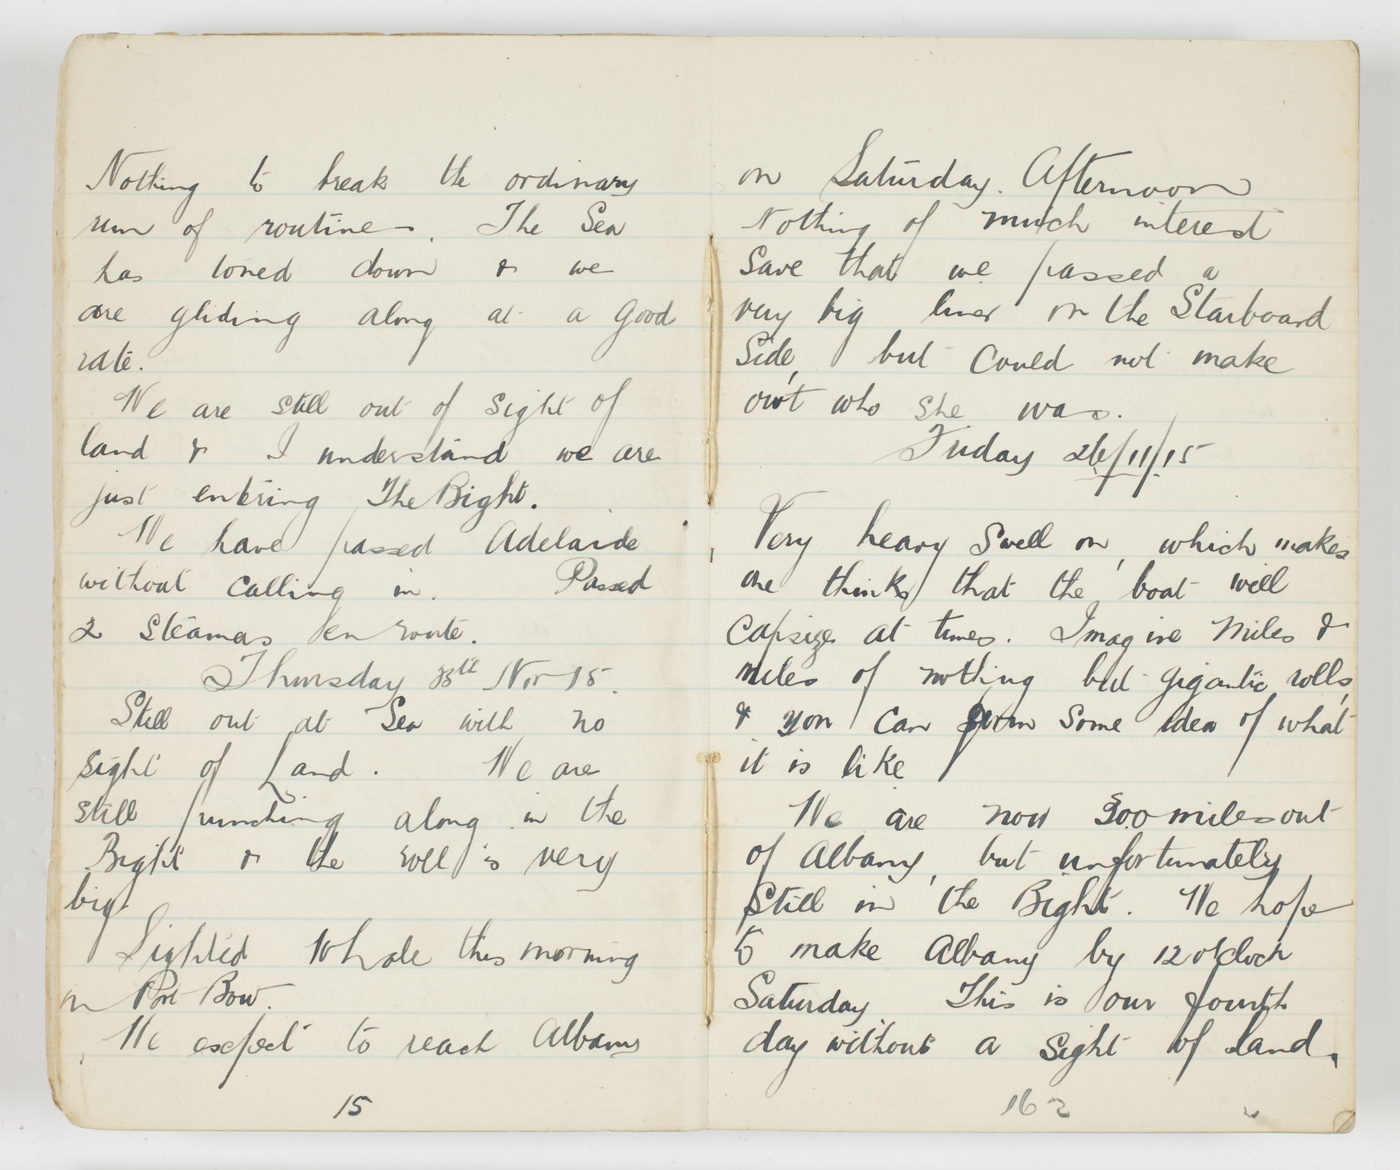 Nothing to break the ordinary
run of routine. The Sea
has toned down & we
are gliding along at a good
rate.
We are still out of sight of
land & I understand we are
just entering The Bight.
We have passed Adelaide
without calling in. Passed
2 Steamers en route.
Thursday 25th Nov 15.
Still out at Sea with no
sight of Land. We are
still punching along in the
Bight & the roll is very
big.
Sighted Whale this morning
on Port Bow.
We expect to reach Albany
15
on Saturday. Afternoon
Nothing of much interest
Save that we passed a
very big liner on the Starboard
Side, but could not make
out who she was.
Friday 26/11/15
Very heavy Swell on, which makes
one think that the boat will
capsize at times. Imagine miles &
miles of nothing but gigantic rolls,
& you can form some idea of what
it is like
We are now 300 miles out
of Albany, but unfortunately
Still in the Bight. We hope
to make Albany by 12 o'clock
Saturday This is our fourth
day without a sight of land.
16